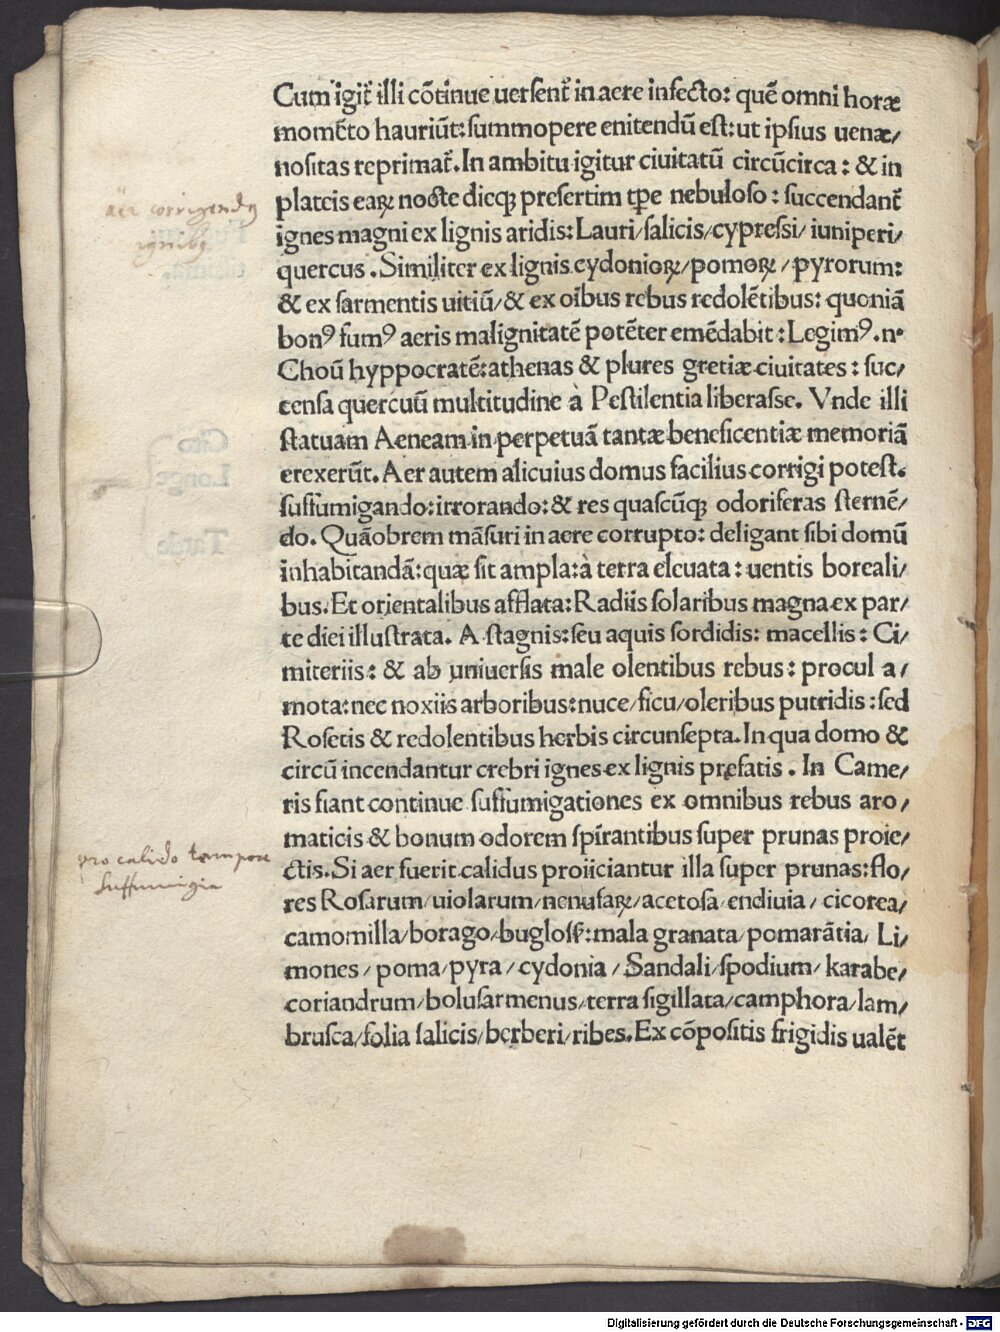 Cum igit̃ illi cõtinue uersent̃ in aere infecto: quẽ omni horæ
momẽto hauriũt: summopere enitendũ est: ut ipsius uenæ/
nositas reprimat̃. In ambitu igitur ciuitatũ circũcirca: & in
plateis eaꝝ nocte dieqꝫ presertim tꝑe nebuloso: succendant̃
ignes magni ex lignis aridis: Lauri/salicis/cypressi/iuniperi/
quercus. Similiter ex lignis cydonioꝝ/pomoꝝ/pyrorum:
& ex sarmentis uitiũ/& ex oĩbus rebus redolẽtibus: quoniã
bonꝰ fumꝰ aeris malignitatẽ potẽter emẽdabit: Legimꝰ. n.
Choũ hyppocratẽ: athenas & plures gretiæ ciuitates: suc/
censa quercuũ multitudine à Pestilentia liberasse. Vnde illi
statuam Aeneam in perpetuã tantæ beneficentiæ memoriã
erexerũt. Aer autem alicuius domus facilius corrigi potest.
suffumigando: irrorando: & res quascũqꝫ odoriferas sternẽ/
do. Quãobrem mãsuri in aere corrupto: deligant sibi domũ
inhabitandã: quæ sit ampla: à terra eleuata: uentis boreali/
bus. Et orientalibus afflata: Radiis solaribus magna ex par/
te diei illustrata. A stagnis: seu aquis sordidis: macellis: Ci/
miteriis: & ab uniuersis male olentibus rebus: procul a/
mota: nec noxiis arboribus: nuce/ficu/oleribus putridis: sed
Rosetis & redolentibus herbis circunsepta. In qua domo &
circũ incendantur crebri ignes ex lignis prefatis. In Came/
ris fiant continue suffumigationes ex omnibus rebus aro/
maticis & bonum odorem spirantibus super prunas proie/
ctis. Si aer fuerit calidus proiiciantur illa super prunas: flo/
res Rosarum/uiolarum/nenufaꝝ/acetosa/endiuia/cicorea/
camomilla/borago/bugloss̃: mala granata/pomarãtia/Li/
mones/poma/pyra/cydonia/Sandali/spodium/karabe/
coriandrum/bolusarmenus/terra sigillata/camphora/lam/
brusca/folia salicis/berberi/ribes. Ex cõpositis frigidis ualẽt
aer corrigendꝰ
ignibꝰ
pro calido tempore
suffumigia
Digitalisierung gefördert durch die Deutsche Forschungsgemeinschaft - DFG